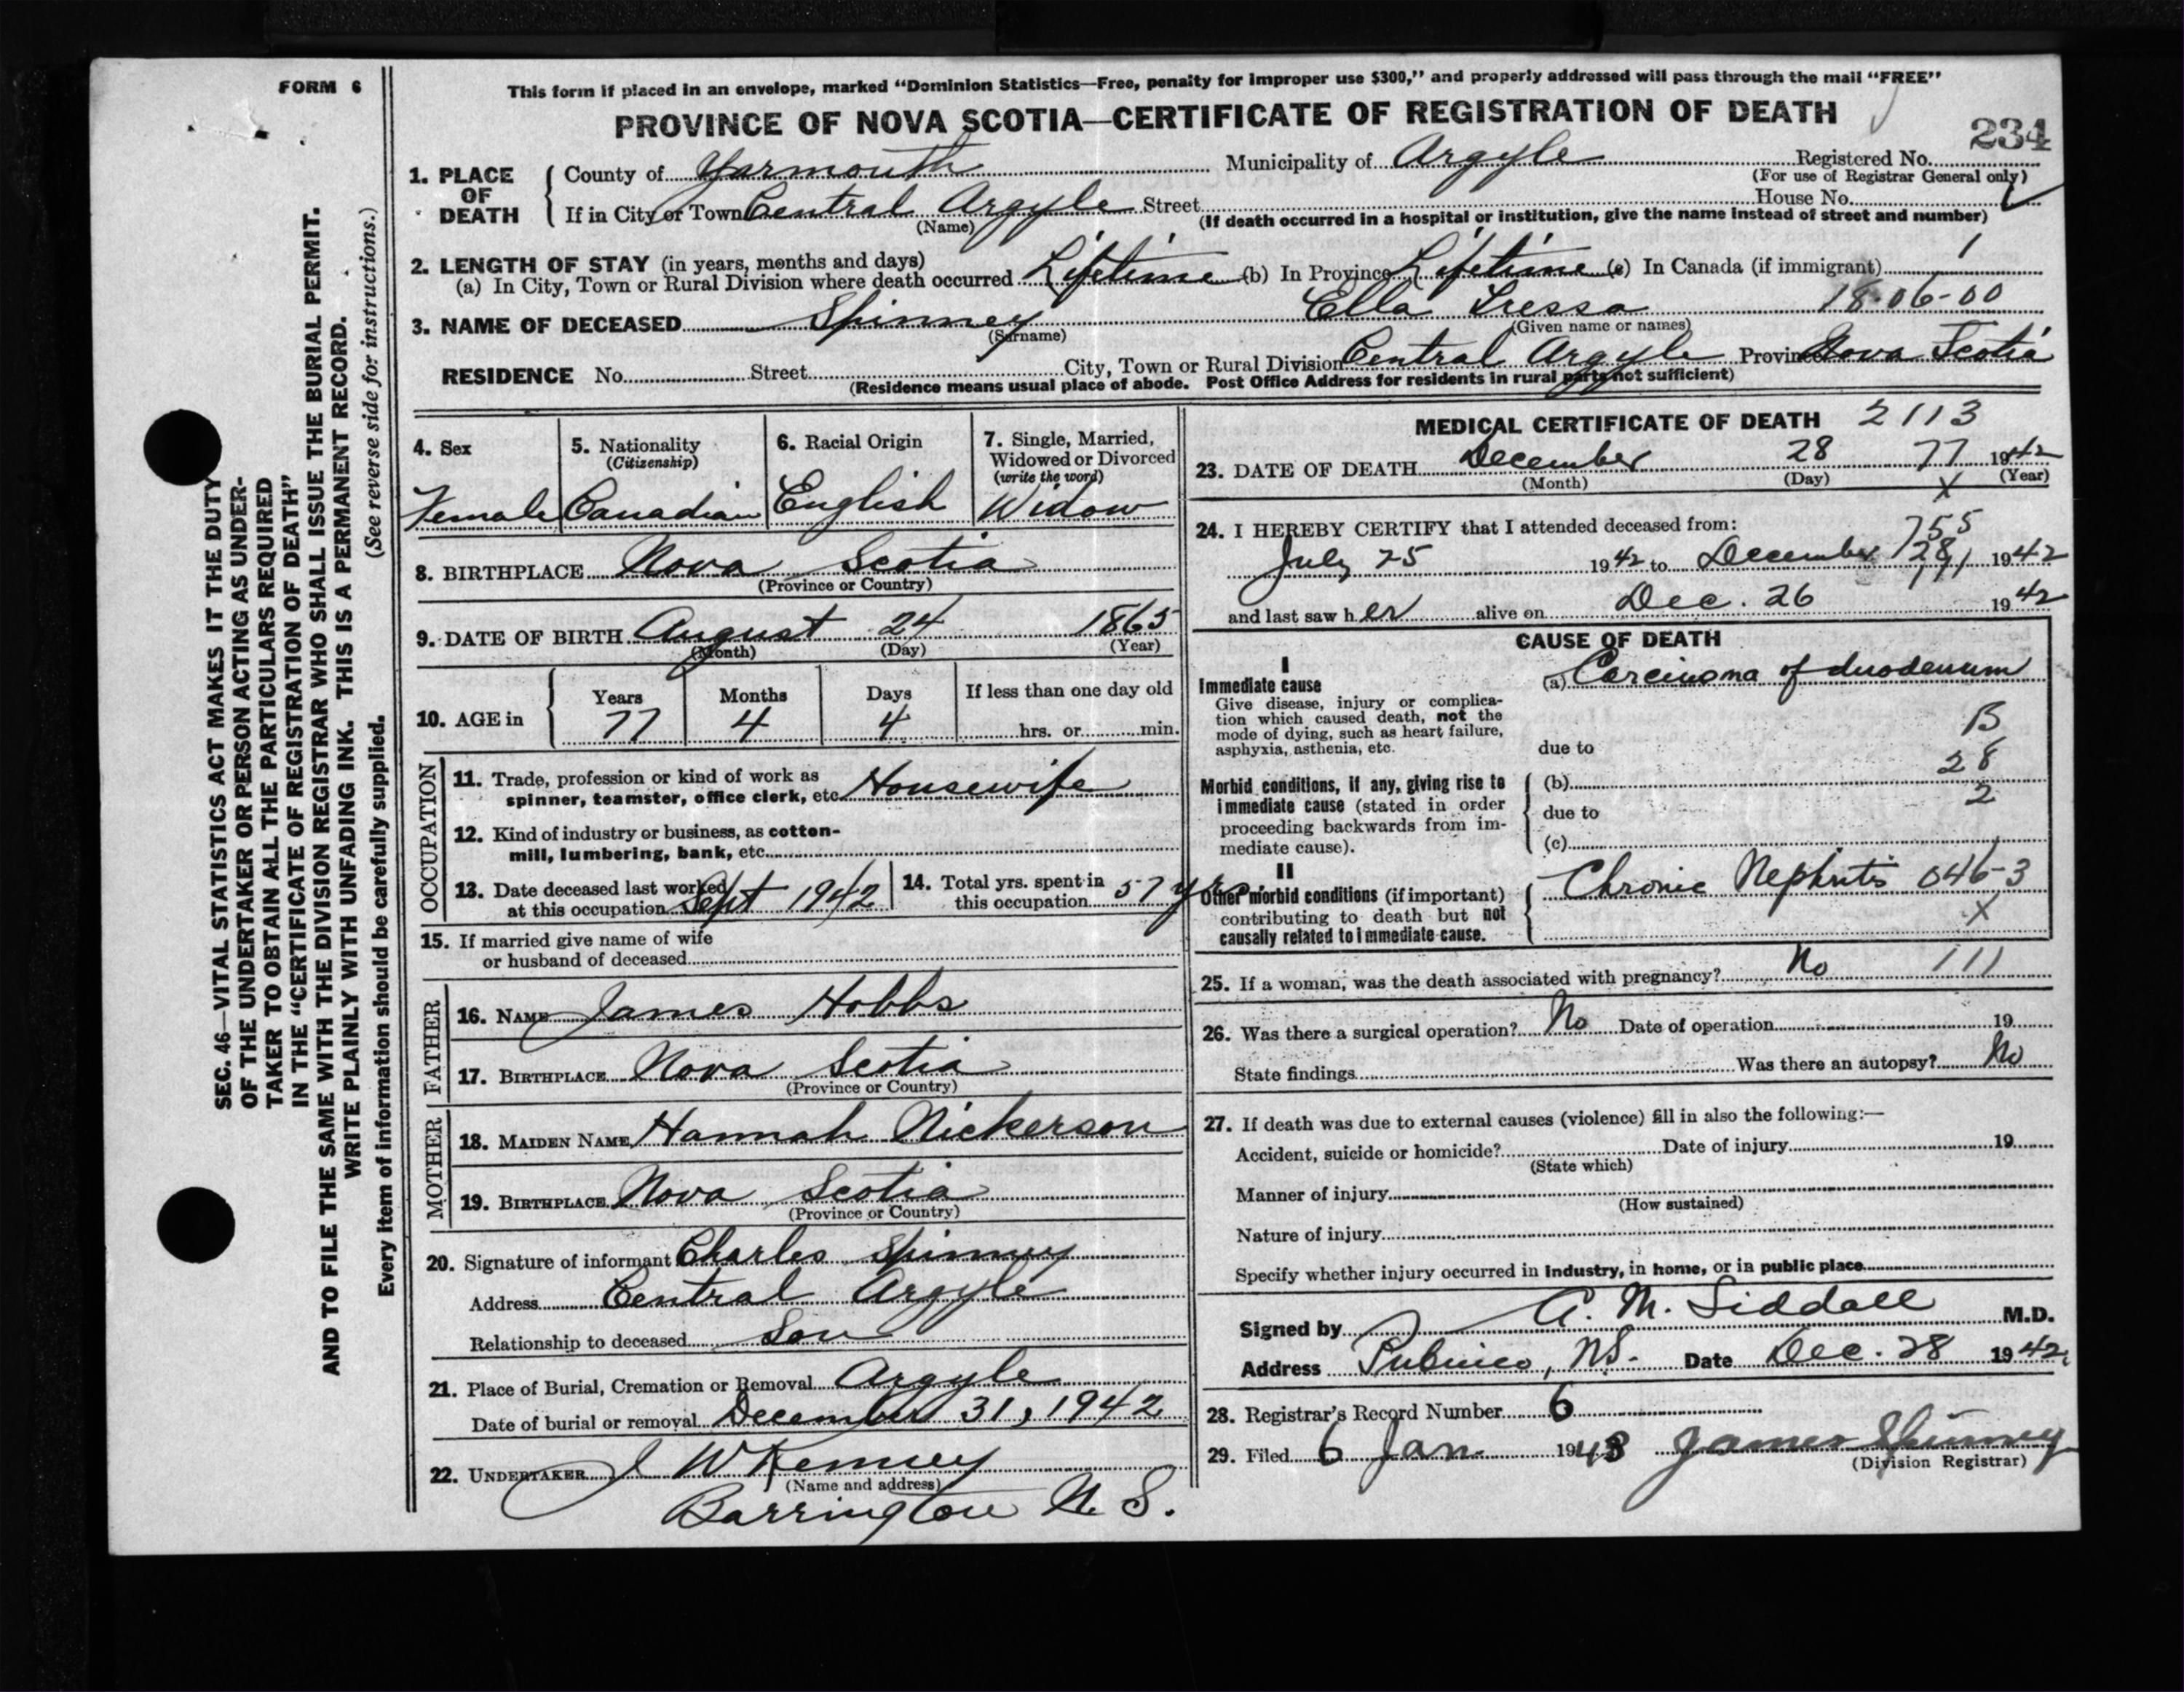 FORM 6
This form if placed in an envelope, marked “Dominion Statistics—Free, penalty for improper use $300,” and properly addressed will pass through the mail “FREE”
PROVINCE OF NOVA SCOTIA—CERTIFICATE OF REGISTRATION OF DEATH
234
1. PLACE OF DEATH
County of Yarmouth Municipality of Argyle Registered No.
(For use of Registrar General only)
If in City or Town Central Argyle Street House No.
(Name) (If death occurred in a hospital or institution, give the name instead of street and number)
2. LENGTH OF STAY (in years, months and days)
(a) In City, Town or Rural Division where death occurred Lifetime (b) In Province Lifetime (c) In Canada (if immigrant)
3. NAME OF DECEASED Spinney Ella Tressa 18-06-00
(Surname) (Given name or names)
RESIDENCE No. Street City, Town or Rural Division Central Argyle Province Nova Scotia
(Residence means usual place of abode. Post Office Address for residents in rural parts not sufficient)
4. Sex
Female
5. Nationality
(Citizenship)
Canadian
6. Racial Origin
English
7. Single, Married,
Widowed or Divorced
(write the word)
Widow
8. BIRTHPLACE Nova Scotia
(Province or Country)
9. DATE OF BIRTH August 24 1865
(Month) (Day) (Year)
10. AGE in
Years Months Days If less than one day old
77 4 4 hrs. or min.
OCCUPATION
11. Trade, profession or kind of work as
spinner, teamster, office clerk, etc. Housewife
12. Kind of industry or business, as cotton-
mill, lumbering, bank, etc.
13. Date deceased last worked
at this occupation Sept 1942
14. Total yrs. spent in
this occupation 57 yrs.
15. If married give name of wife
or husband of deceased
FATHER
16. NAME James Hobbs
17. BIRTHPLACE Nova Scotia
(Province or Country)
MOTHER
18. MAIDEN NAME Hannah Nickerson
19. BIRTHPLACE Nova Scotia
(Province or Country)
20. Signature of informant Charles Spinney
Address Central Argyle
Relationship to deceased Son
21. Place of Burial, Cremation or Removal Argyle
Date of burial or removal December 31, 1942
22. UNDERTAKER J W Kenney
(Name and address)
Barrington N. S.
MEDICAL CERTIFICATE OF DEATH 2113
23. DATE OF DEATH December 28 77 1942
(Month) (Day) (Year)
X
24. I HEREBY CERTIFY that I attended deceased from:
755
July 25 1942 to December 28 1942
and last saw her alive on Dec. 26 1942
CAUSE OF DEATH
I
Immediate cause
Give disease, injury or complica-
tion which caused death, not the
mode of dying, such as heart failure,
asphyxia, asthenia, etc.
(a) Carcinoma of duodenum
B
due to
28
Morbid conditions, if any, giving rise to
immediate cause (stated in order
proceeding backwards from im-
mediate cause).
(b)
2
due to
(c)
II
Other morbid conditions (if important)
contributing to death but not
causally related to immediate cause.
Chronic Nephritis 046-3
X
25. If a woman, was the death associated with pregnancy? No 111
26. Was there a surgical operation? No Date of operation 19
State findings Was there an autopsy? No
27. If death was due to external causes (violence) fill in also the following:—
Accident, suicide or homicide? Date of injury 19
(State which)
Manner of injury
(How sustained)
Nature of injury
Specify whether injury occurred in industry, in home, or in public place
Signed by A. M. Siddall M.D.
Address Pubnico, N.S. Date Dec. 28 1942
28. Registrar's Record Number 6
29. Filed 6 Jan. 1943 James Spinney
(Division Registrar)
SEC. 46—VITAL STATISTICS ACT MAKES IT THE DUTY
OF THE UNDERTAKER OR PERSON ACTING AS UNDER-
TAKER TO OBTAIN ALL THE PARTICULARS REQUIRED
IN THE “CERTIFICATE OF REGISTRATION OF DEATH”
AND TO FILE THE SAME WITH THE DIVISION REGISTRAR WHO SHALL ISSUE THE BURIAL PERMIT.
WRITE PLAINLY WITH UNFADING INK. THIS IS A PERMANENT RECORD.
(See reverse side for instructions.)
Every item of information should be carefully supplied.